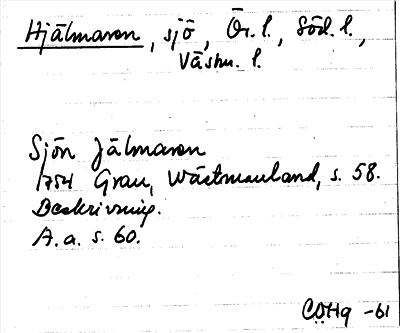 Hjälmaren, sjö, Ör. l., Söd. l.,
Västm. l.
Sjön Jälmaren
1754 Grau, Wästmanland, s. 58.
Beskrivning.
A. a. s. 60.
COHg -61